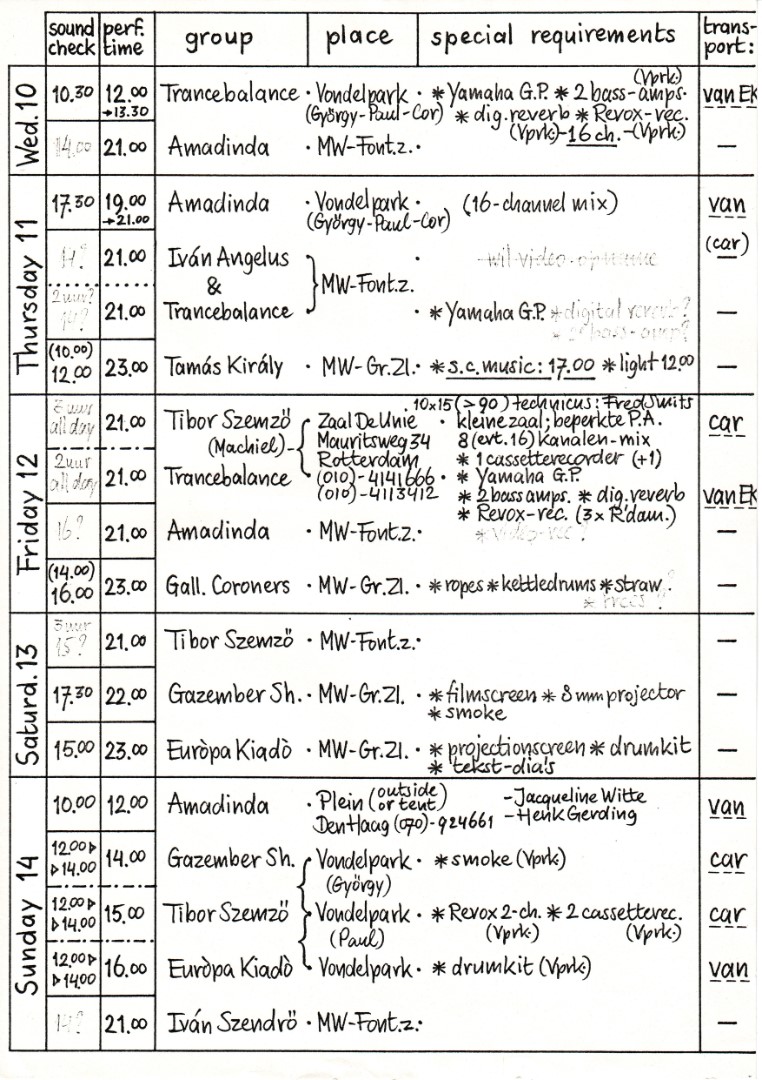 sound check perf. time group place special requirements trans-port:
Wed. 10
(Vprk.)
10.30 12.00 Trancebalance · Vondelpark · * Yamaha G.P. * 2 bass-amps. van EK
→13.30 (György-Paul-Cor) * dig.reverb * Revox-rec.
(Vprk.)-16 ch.-(Vprk.)
14.00 21.00 Amadinda · MW-Font.z. · —
Thursday 11
17.30 19.00 Amadinda · Vondelpark · (16-channel mix) van
→21.00 (György-Paul-Cor)
(car)
14? 21.00 Iván Angelus · wil video-opname —
& } MW-Font.z.
2 uur?
14? 21.00 Trancebalance · * Yamaha G.P. * digital reverb? —
* 2 bass-amp?
(10.00)
12.00 23.00 Tamás Király · MW-Gr.Zl. · * s.c. music: 17.00 * light 12.00 —
Friday 12
10x15 (> 90) technicus: Fred Smits
3 uur all day 21.00 Tibor Szemzö Zaal De Unie · kleine zaal; beperkte P.A. car
(Machiel)- Mauritsweg 34 8 (evt. 16) kanalen-mix
Rotterdam * 1 cassetterecorder (+1)
2 uur all day 21.00 Trancebalance (010)-4141666 · * Yamaha G.P. van EK
(010)-4113412 * 2 bass amps. * dig.reverb
* Revox-rec. (3x R'dam.)
16? 21.00 Amadinda · MW-Font.z. · * video-rec? —
(14.00)
16.00 23.00 Gall. Coroners · MW-Gr.Zl. · * ropes * kettledrums * straw? —
Saturd. 13
3 uur
15? 21.00 Tibor Szemzö · MW-Font.z. · —
17.30 22.00 Gazember Sh. · MW-Gr.Zl. · * filmscreen * 8 mm projector —
* smoke
15.00 23.00 Euròpa Kiadò · MW-Gr.Zl. · * projectionscreen * drumkit —
* tekst-dia's
Sunday 14
10.00 12.00 Amadinda · Plein (outside or tent) -Jacqueline Witte van
Den Haag (070)-924661 -Henk Gerding
12.00 ▷
▷ 14.00 14.00 Gazember Sh. Vondelpark · * smoke (Vprk.) car
(György)
12.00 ▷
▷ 14.00 15.00 Tibor Szemzö Vondelpark · * Revox 2-ch. * 2 cassetterec. car
(Paul) (Vprk.) (Vprk.)
12.00 ▷
▷ 14.00 16.00 Euròpa Kiadò Vondelpark · * drumkit (Vprk.) van
14? 21.00 Iván Szendrö · MW-Font.z. · —